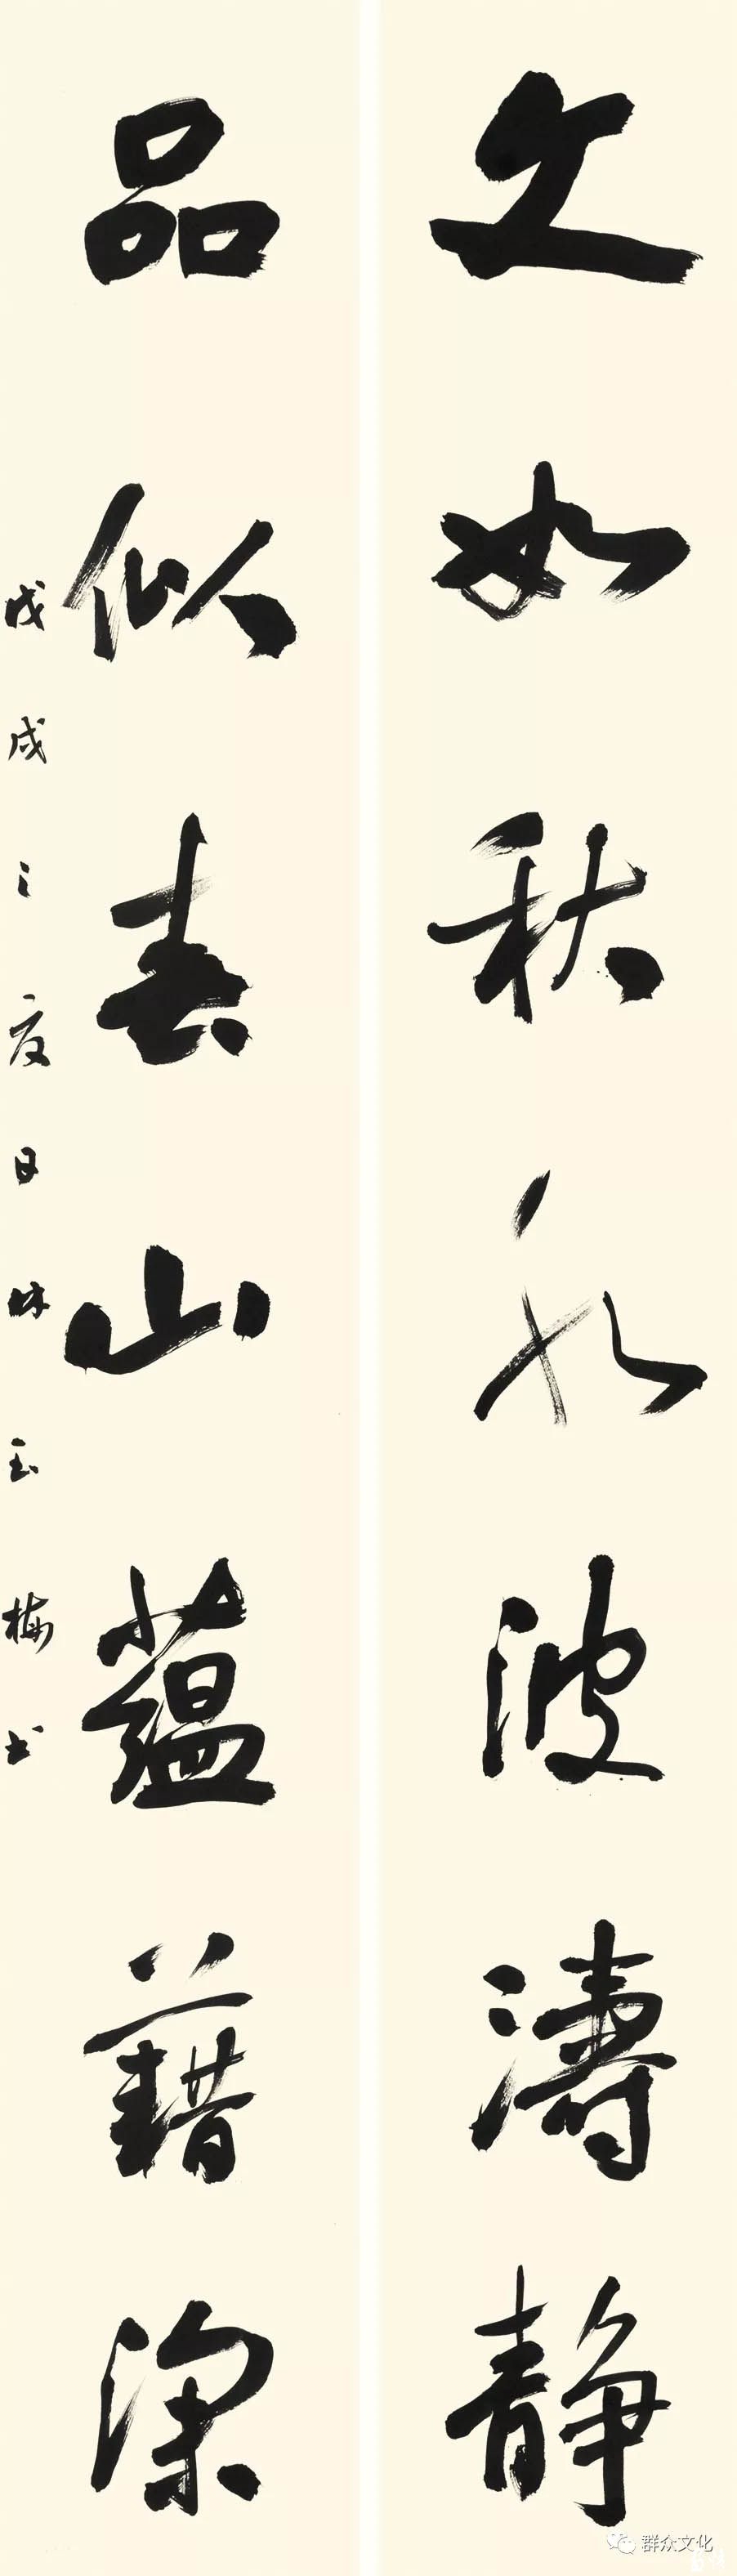 文如秋水波濤静
品似春山蕴藉深
戊戌之夏日林玉梅书
群众文化